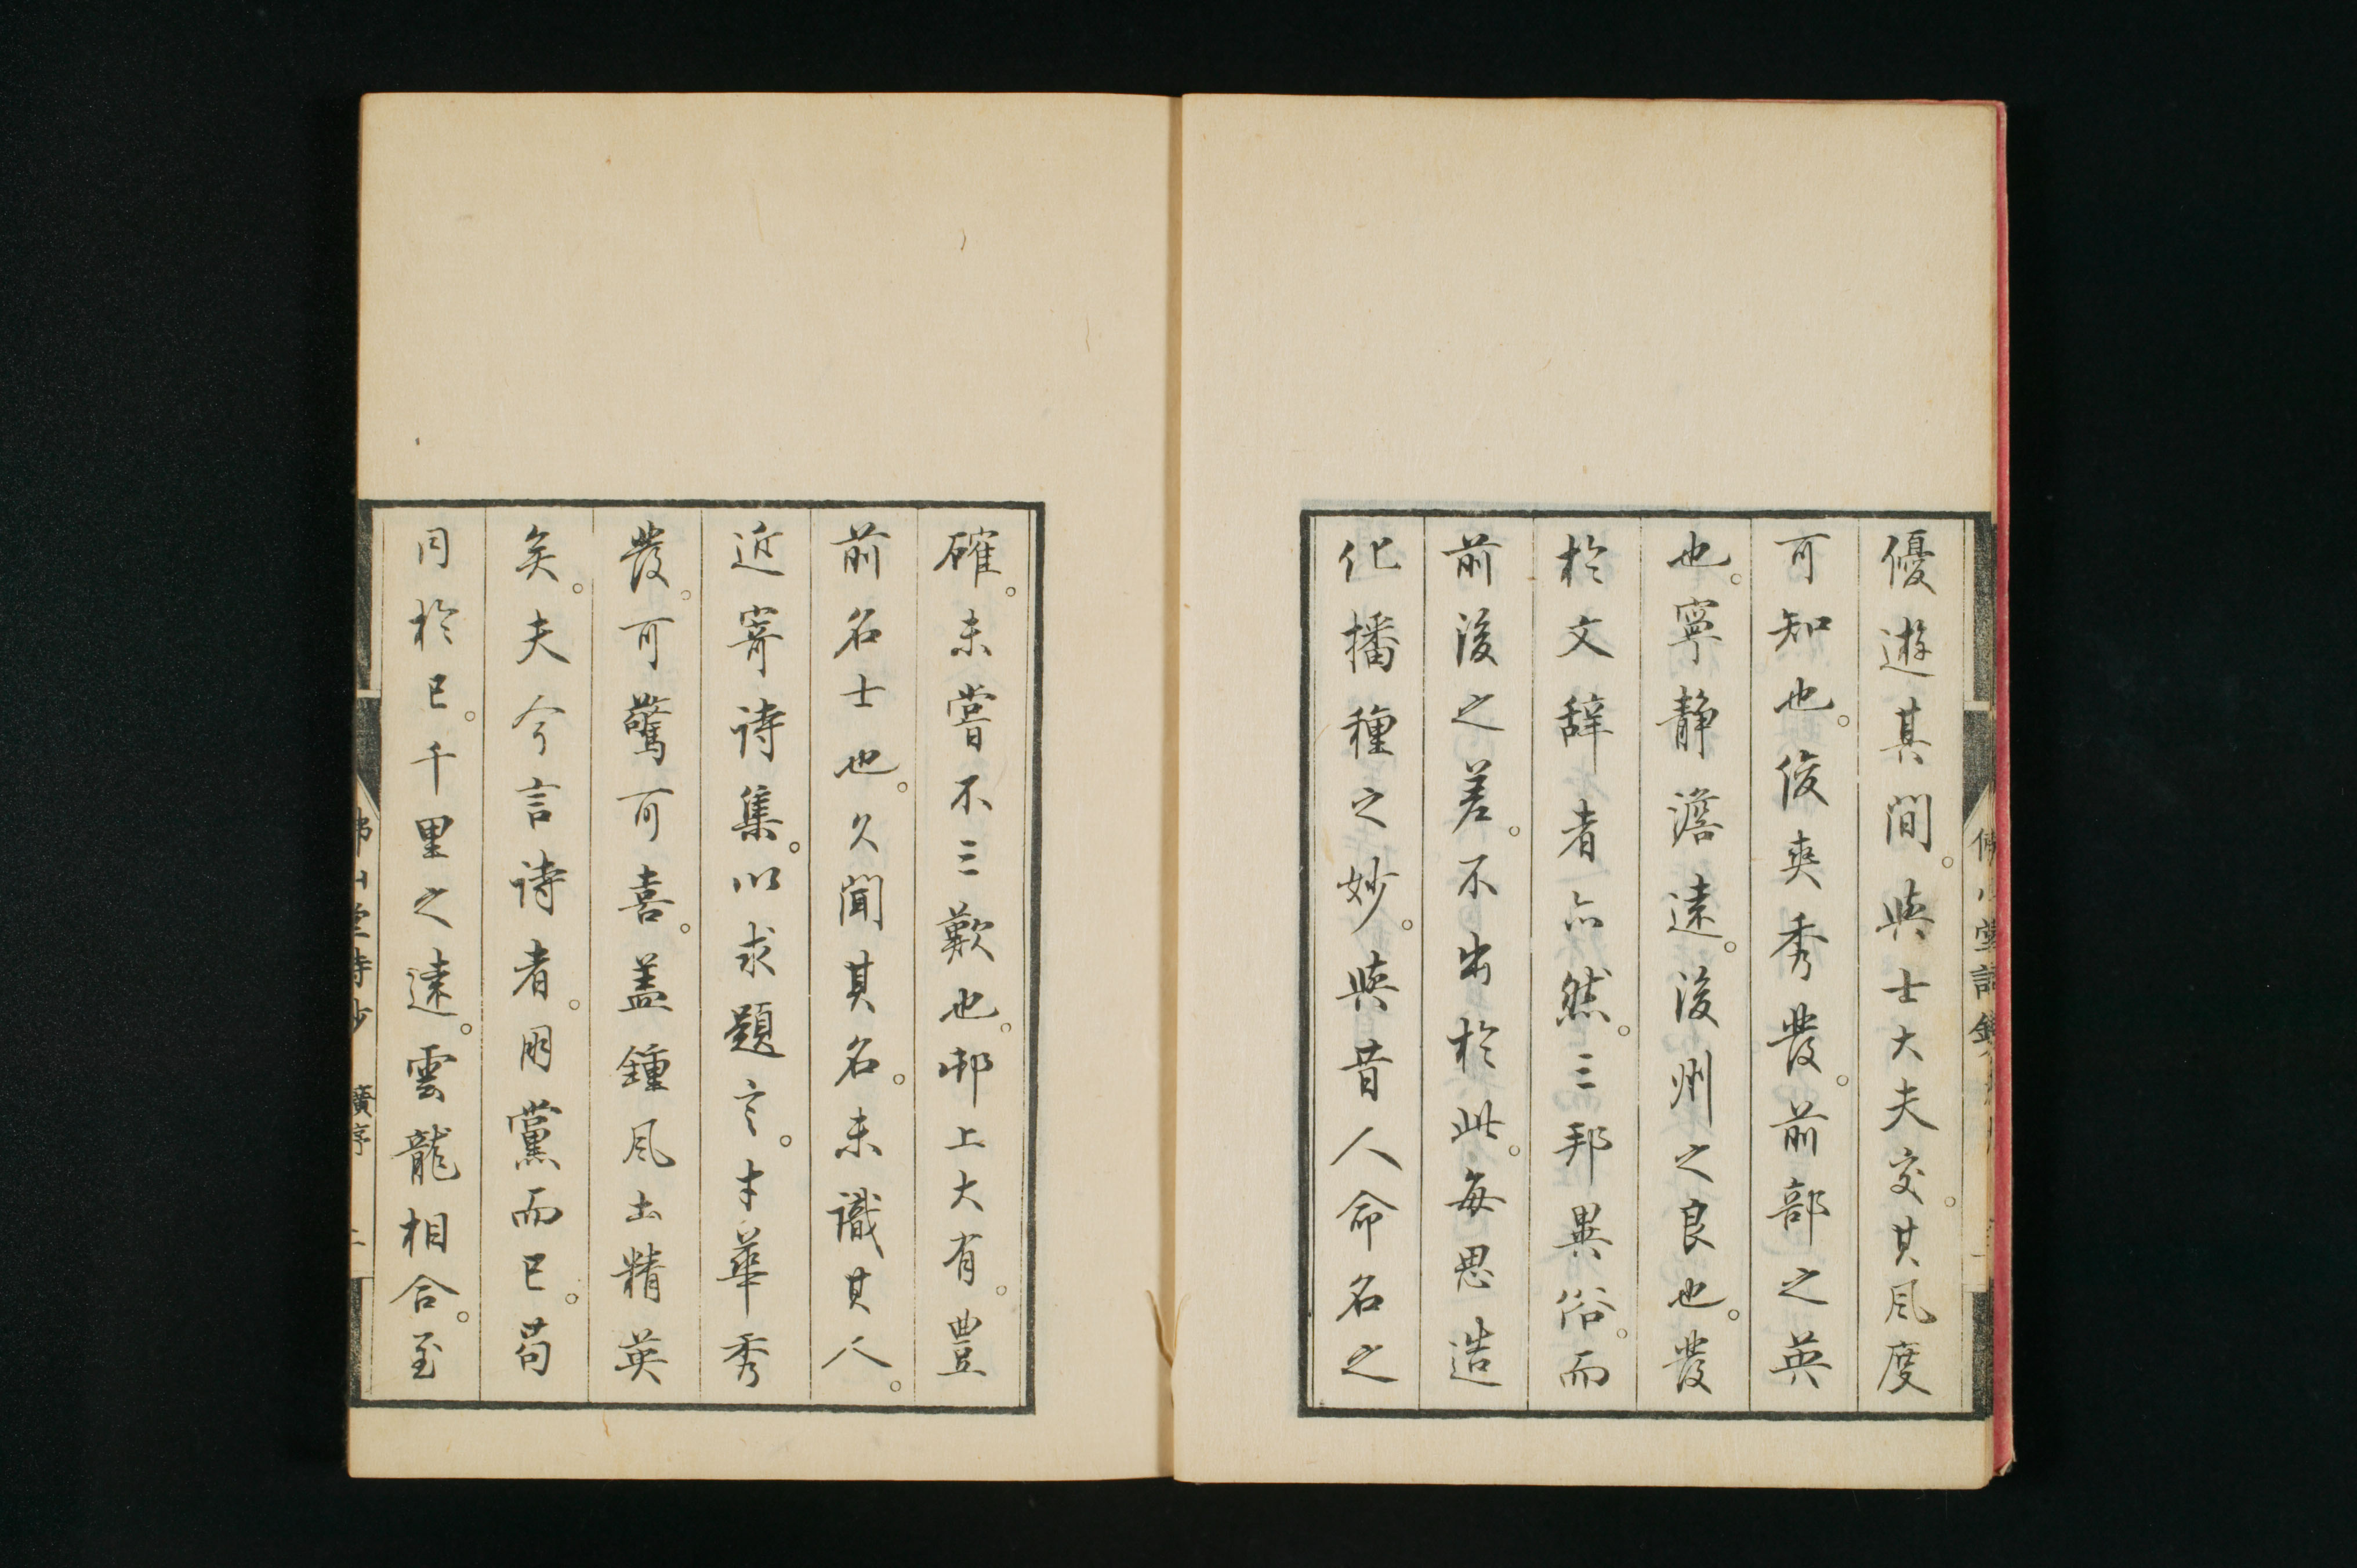 優遊其間。與士大夫交。其風度
可知也。俊爽秀發。前部之英
也。寧靜澹遠。後州之良也。發
於文辭者亦然。三邦異俗。而
前後之差。不出於此。每思造
化播種之妙。與昔人命名之
確。未嘗不三歎也。邨上大有。豊
前名士也。久聞其名。未識其人。
近寄詩集。以求題言。才華秀
發。可驚可喜。盖鍾風土精英
矣。夫今言詩者。朋黨而已。苟
同於已。千里之遠。雲龍相合。至
佛山堂詩鈔
佛山堂詩鈔 廣序 二